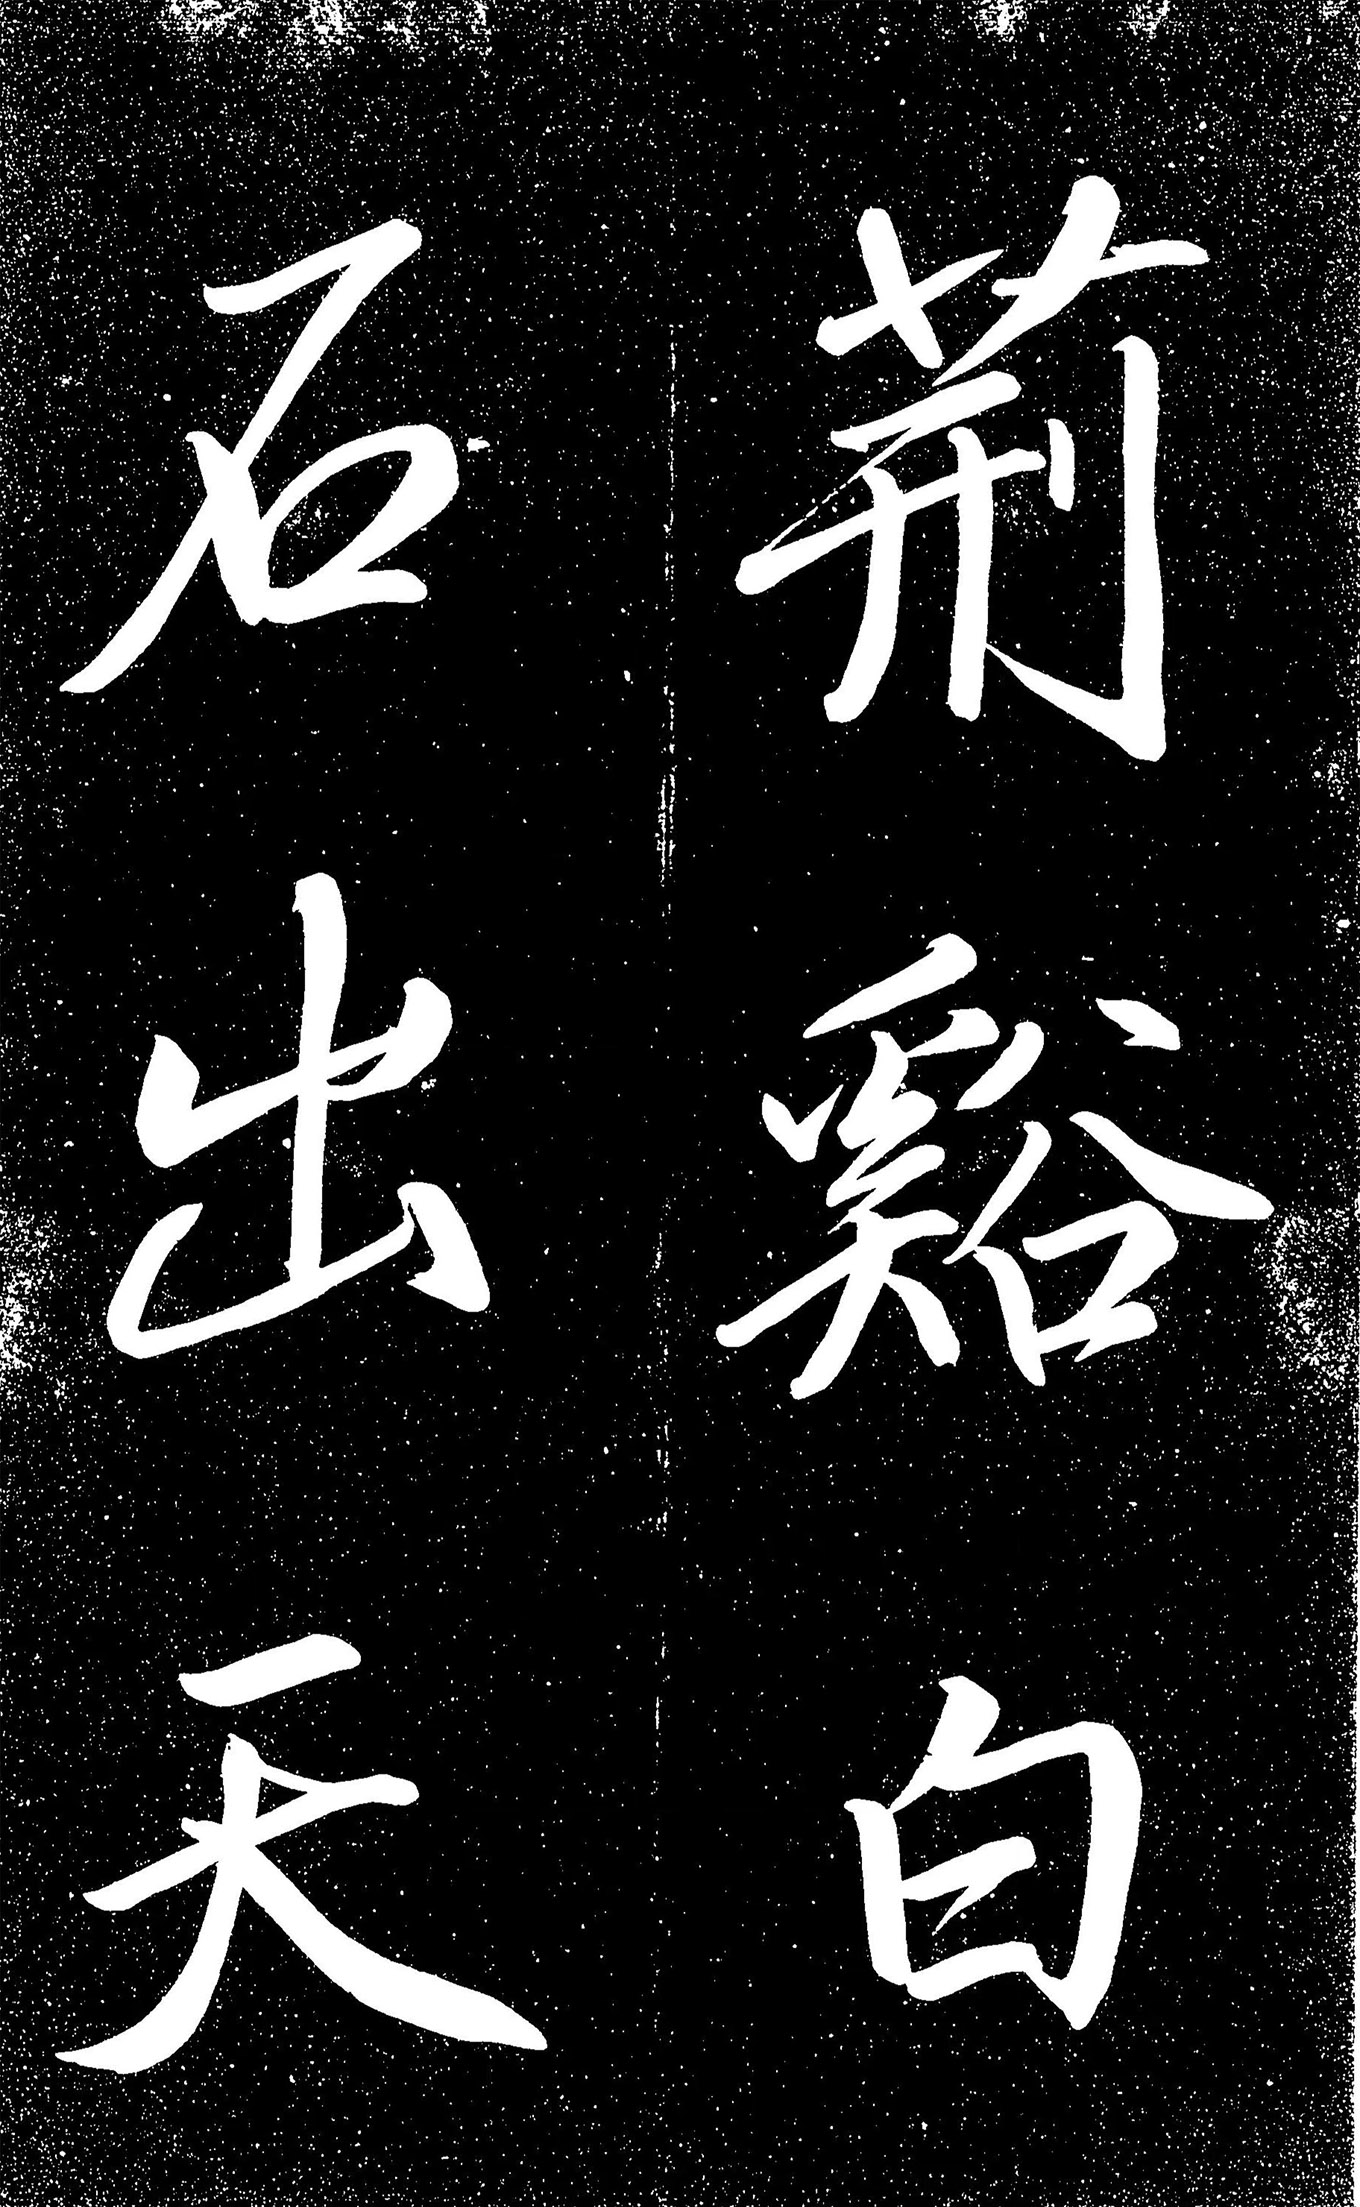 荆谿白
石出天